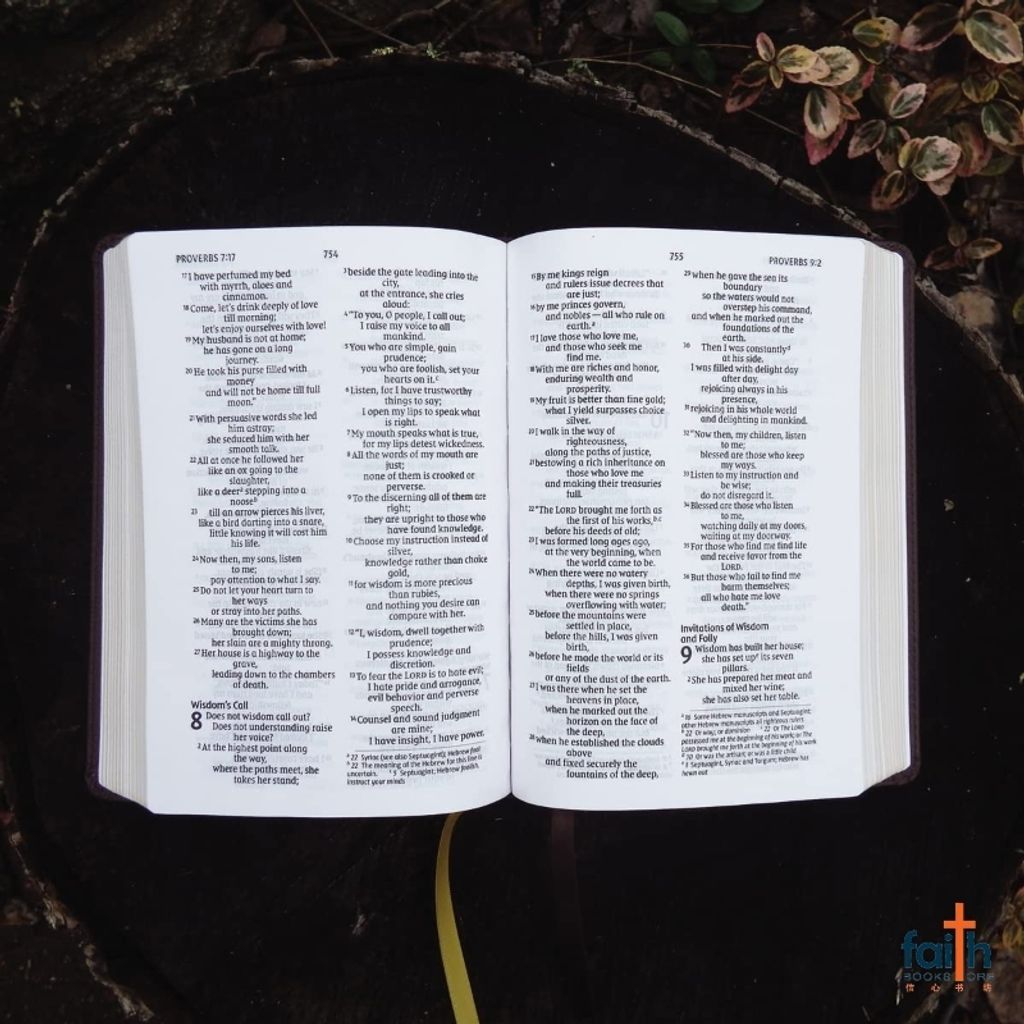 PROVERBS 7:17
754
17 I have perfumed my bed
with myrrh, aloes and
cinnamon.
18 Come, let's drink deeply of love
till morning;
let's enjoy ourselves with love!
19 My husband is not at home;
he has gone on a long
journey.
20 He took his purse filled with
money
and will not be home till full
moon."
21 With persuasive words she led
him astray;
she seduced him with her
smooth talk.
22 All at once he followed her
like an ox going to the
slaughter,
like a deer a stepping into a
noose b
23 till an arrow pierces his liver,
like a bird darting into a snare,
little knowing it will cost him
his life.
24 Now then, my sons, listen
to me;
pay attention to what I say.
25 Do not let your heart turn to
her ways
or stray into her paths.
26 Many are the victims she has
brought down;
her slain are a mighty throng.
27 Her house is a highway to the
grave,
leading down to the chambers
of death.
Wisdom's Call
8 Does not wisdom call out?
Does not understanding raise
her voice?
2 At the highest point along
the way,
where the paths meet, she
takes her stand;
3 beside the gate leading into the
city,
at the entrance, she cries
aloud:
4 "To you, O people, I call out;
I raise my voice to all
mankind.
5 You who are simple, gain
prudence;
you who are foolish, set your
hearts on it. c
6 Listen, for I have trustworthy
things to say;
I open my lips to speak what
is right.
7 My mouth speaks what is true,
for my lips detest wickedness.
8 All the words of my mouth are
just;
none of them is crooked or
perverse.
9 To the discerning all of them are
right;
they are upright to those who
have found knowledge.
10 Choose my instruction instead of
silver,
knowledge rather than choice
gold,
11 for wisdom is more precious
than rubies,
and nothing you desire can
compare with her.
12 "I, wisdom, dwell together with
prudence;
I possess knowledge and
discretion.
13 To fear the LORD is to hate evil;
I hate pride and arrogance,
evil behavior and perverse
speech.
14 Counsel and sound judgment
are mine;
I have insight, I have power.
a 22 Syriac (see also Septuagint); Hebrew fool
b 22 The meaning of the Hebrew for this line is
uncertain. c 5 Septuagint; Hebrew foolish,
instruct your minds
755
PROVERBS 9:2
15 By me kings reign
and rulers issue decrees that
are just;
16 by me princes govern,
and nobles — all who rule on
earth. a
17 I love those who love me,
and those who seek me
find me.
18 With me are riches and honor,
enduring wealth and
prosperity.
19 My fruit is better than fine gold;
what I yield surpasses choice
silver.
20 I walk in the way of
righteousness,
along the paths of justice,
21 bestowing a rich inheritance on
those who love me
and making their treasuries
full.
22 "The LORD brought me forth as
the first of his works, b c
before his deeds of old;
23 I was formed long ages ago,
at the very beginning, when
the world came to be.
24 When there were no watery
depths, I was given birth,
when there were no springs
overflowing with water;
25 before the mountains were
settled in place,
before the hills, I was given
birth,
26 before he made the world or its
fields
or any of the dust of the earth.
27 I was there when he set the
heavens in place,
when he marked out the
horizon on the face of
the deep,
28 when he established the clouds
above
and fixed securely the
fountains of the deep,
29 when he gave the sea its
boundary
so the waters would not
overstep his command,
and when he marked out the
foundations of the
earth.
30 Then I was constantly d
at his side.
I was filled with delight day
after day,
rejoicing always in his
presence,
31 rejoicing in his whole world
and delighting in mankind.
32 "Now then, my children, listen
to me;
blessed are those who keep
my ways.
33 Listen to my instruction and
be wise;
do not disregard it.
34 Blessed are those who listen
to me,
watching daily at my doors,
waiting at my doorway.
35 For those who find me find life
and receive favor from the
LORD.
36 But those who fail to find me
harm themselves;
all who hate me love
death."
Invitations of Wisdom
and Folly
9 Wisdom has built her house;
she has set up e its seven
pillars.
2 She has prepared her meat and
mixed her wine;
she has also set her table.
a 16 Some Hebrew manuscripts and Septuagint;
other Hebrew manuscripts all righteous rulers
b 22 Or way; or dominion c 22 Or The LORD
possessed me at the beginning of his work; or The
LORD brought me forth at the beginning of his work
d 30 Or was the artisan; or was a little child
e 1 Septuagint, Syriac and Targum; Hebrew has
hewn out
faith
BOOKSTORE
信心书坊